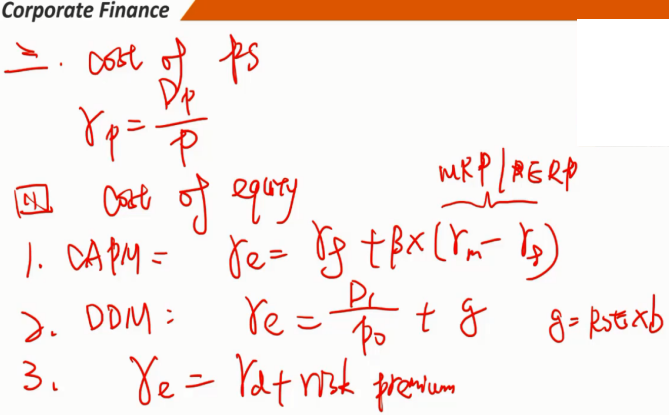 Corporate Finance
三. cost of ps
rp = Dp / P
四 cost of equity
MRP / ERP
1. CAPM = re = rf + β × (rm − rf)
2. DDM : re = D1 / P0 + g g = ROE × b
3. re = rd + risk premium